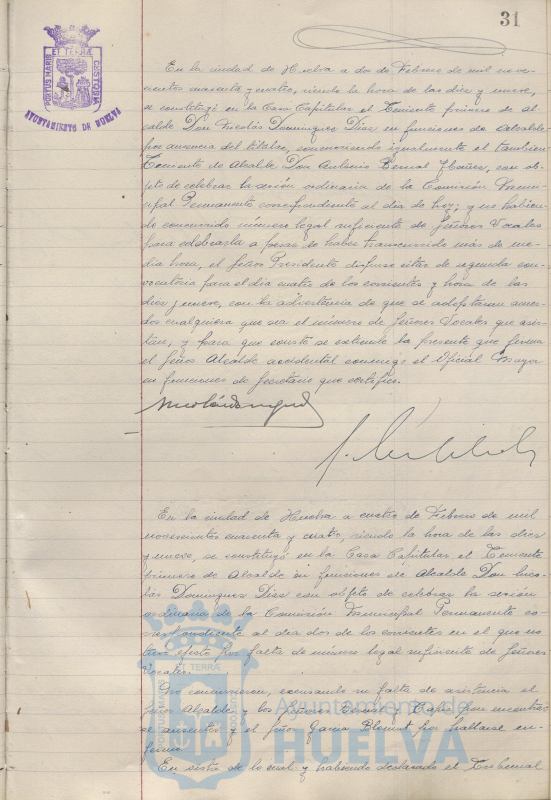 31
PORTUS MARIS ET TERRÆ CUSTODIA
AYUNTAMIENTO DE HUELVA
En la ciudad de Huelva a dos de Febrero de mil nove-
cientos cuarenta y cuatro, siendo la hora de las diez y nueve,
se constituyó en la Casa Capitular el Teniente primero de Al-
calde Don Nicolás Dominguez Diaz en funciones de Alcalde
por ausencia del titular, concurriendo igualmente el tambien
Teniente de Alcalde Don Antonio Bernal con ob-
jeto de celebrar la sesión ordinaria de la Comisión Muni-
cipal Permanente correspondiente al dia de hoy; y no habien-
do concurrido número legal suficiente de Señores Vocales
para celebrarla a pesar de haber transcurrido más de me-
dia hora, el Señor Presidente dispuso citar de segunda con-
vocatoria para el dia cuatro de los corrientes y hora de las
diez y nueve, con la advertencia de que se adoptarán acuer-
dos cualquiera que sea el número de Señores Vocales que asis-
tan, y para que conste se extiende la presente que firma
el Señor Alcalde accidental conmigo el Oficial Mayor
en funciones de Secretario que certifico.
En la ciudad de Huelva a cuatro de Febrero de mil
novecientos cuarenta y cuatro, siendo la hora de las diez
y nueve, se constituyó en la Casa Capitular el Teniente
primero de Alcalde en funciones de Alcalde Don Nico-
lás Dominguez Diaz con objeto de celebrar la sesión
ordinaria de la Comisión Municipal Permanente co-
rrespondiente al dia dos de los corrientes en el que no
tuvo efecto por falta de número legal suficiente de Señores
Vocales.
No concurrieron, excusando su falta de asistencia el
Señor Alcalde y los Señores y por encontrar-
se ausentes y el Señor Garcia por hallarse en-
fermo.
En vista de lo cual y habiendo declarado el Tribunal
Ayuntamiento de
HUELVA